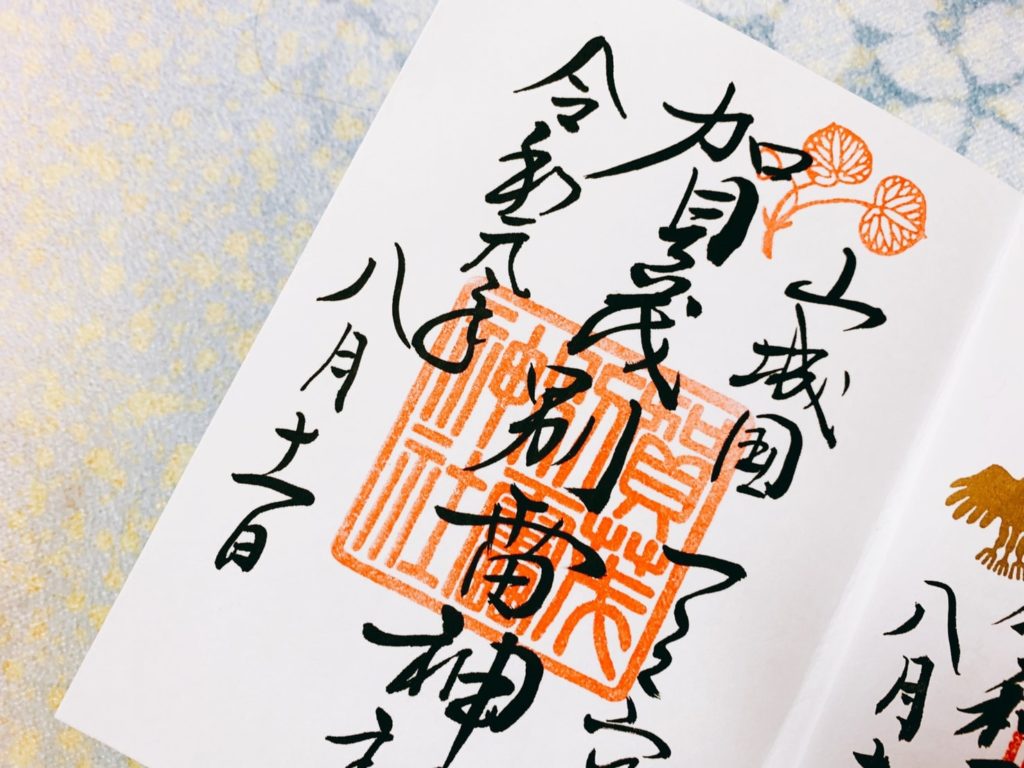 山城国
一之宮
賀茂別雷神社
令和元年
八月十一日
賀茂
別雷
神社
八月十